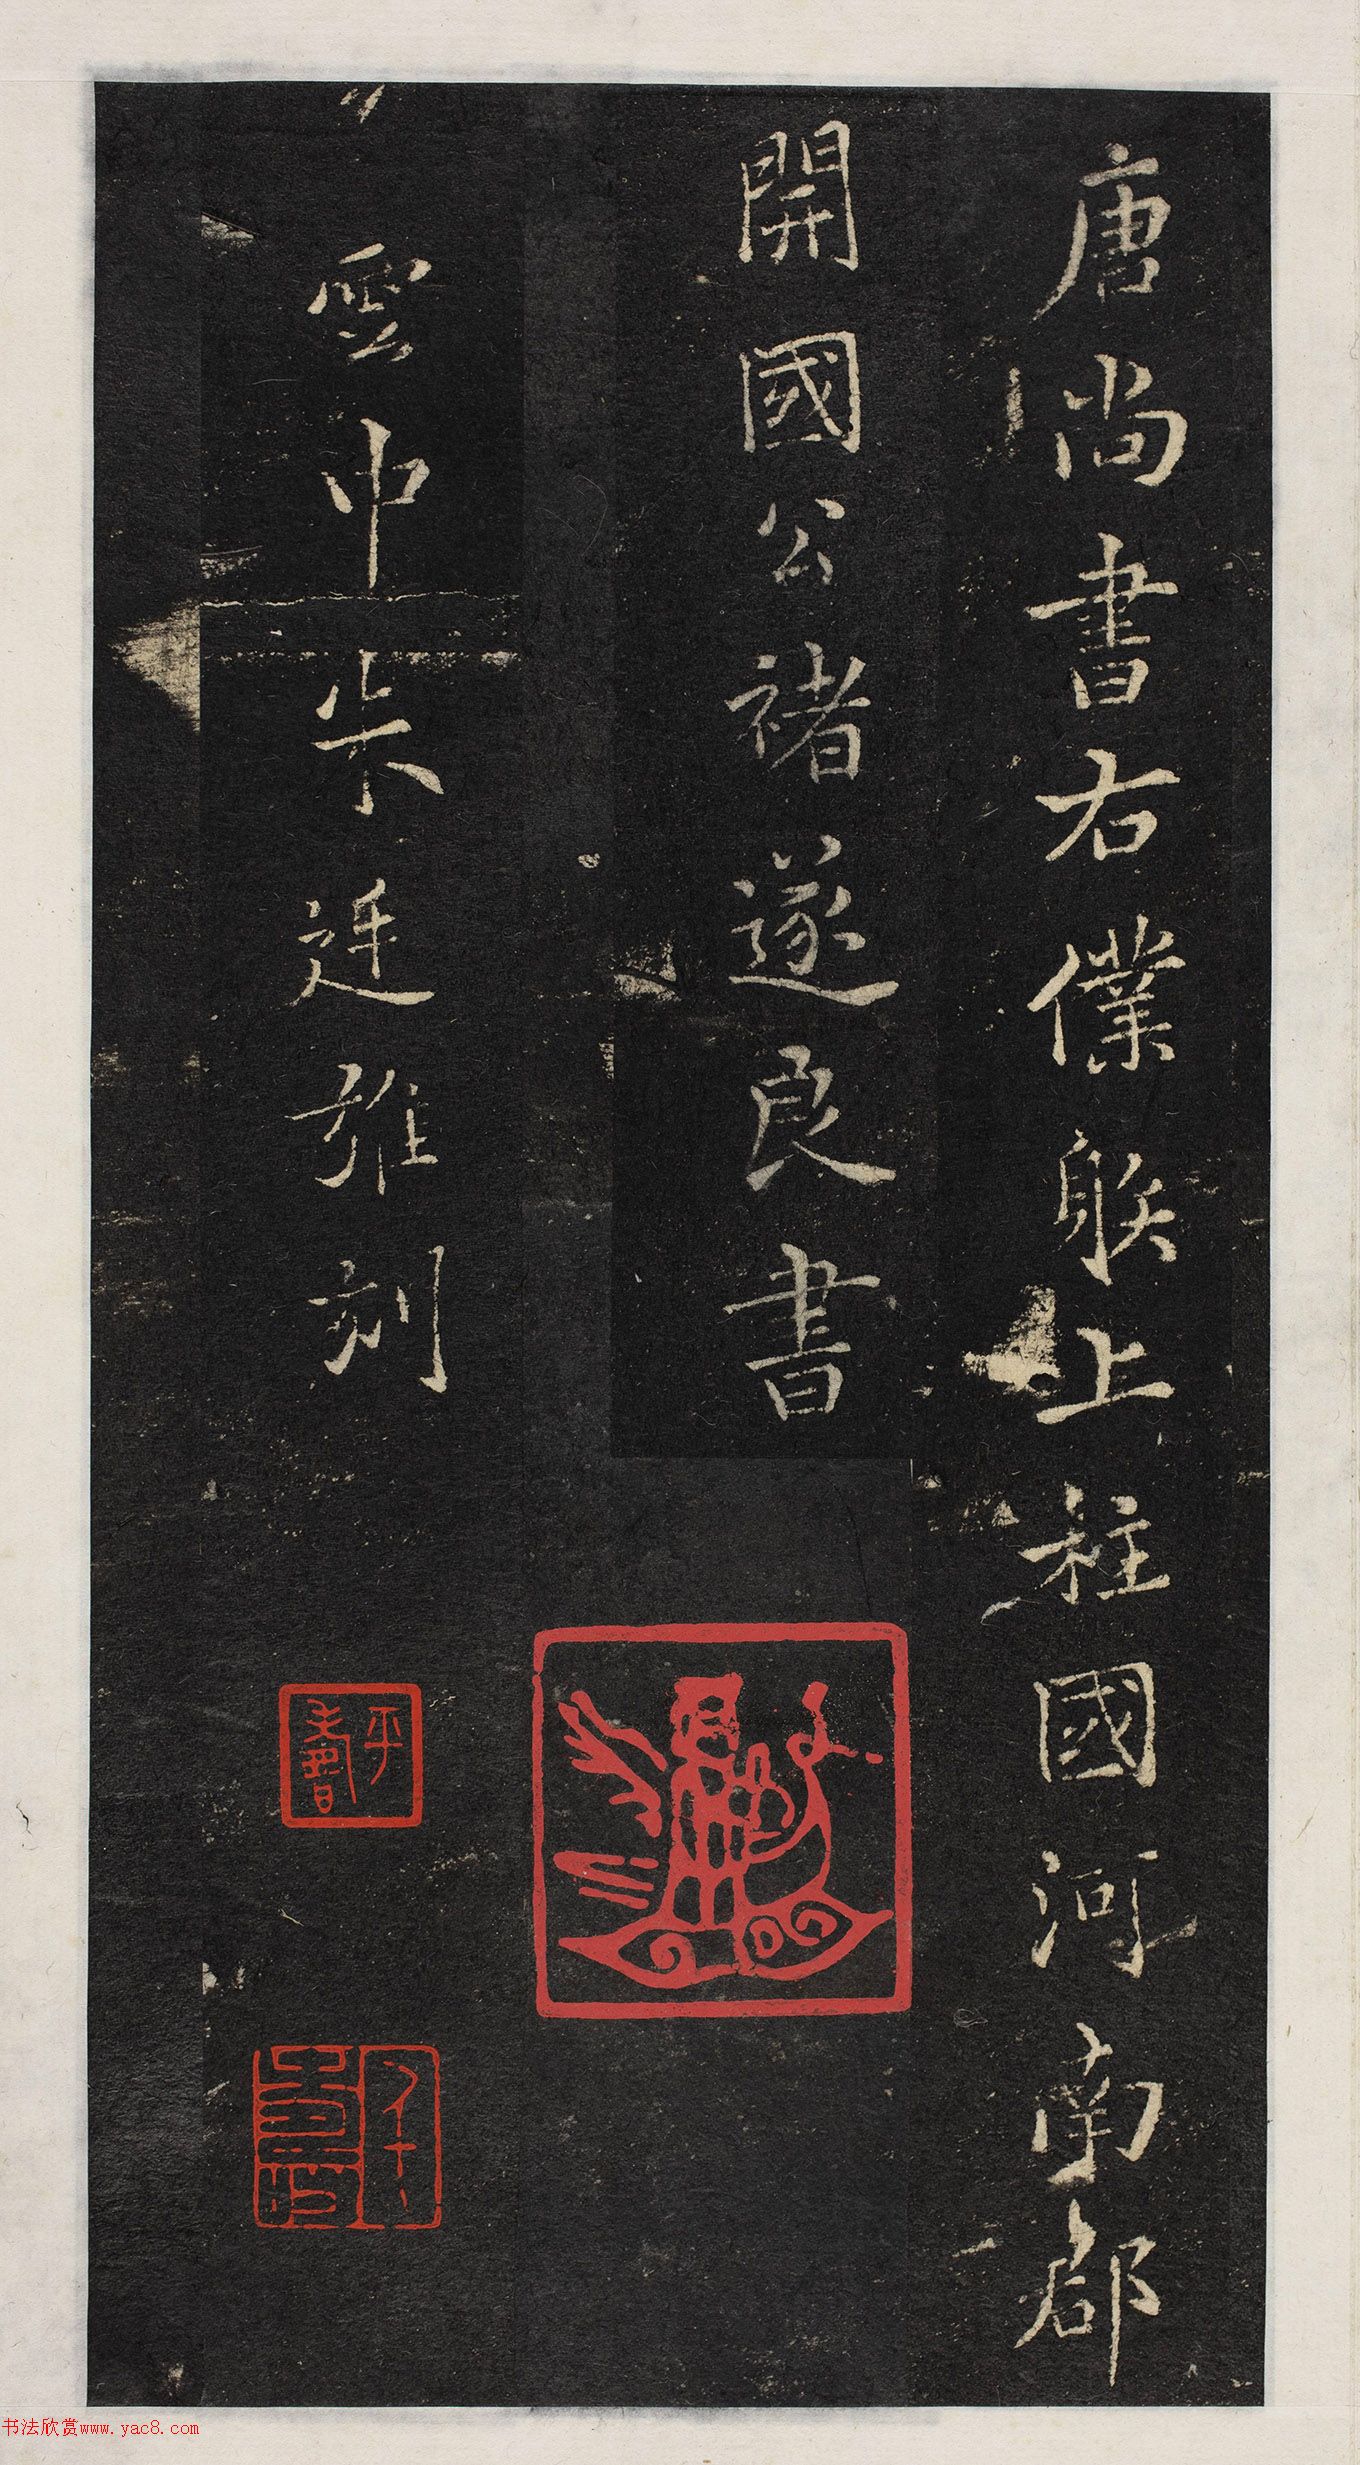 唐尚書右僕䠶上柱國河南郡
開國公褚遂良書
雲中刻
书法欣赏www.yac8.com